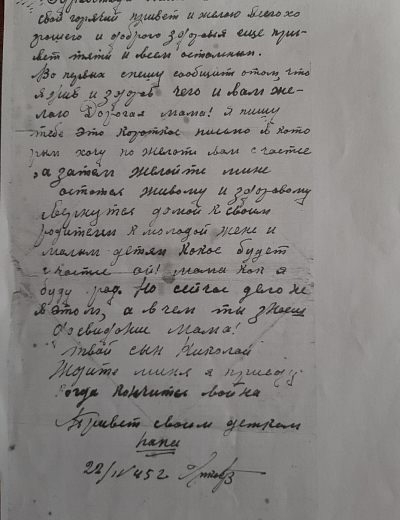 свой горячий привет и желаю всего хо
рошего и доброго здоровья еще при-
вет тяти и всем остальным.
Во первых спешу сообщить отом, что
я жив и здоров чего и вам же-
лаю Дорогая мама! Я пишу
тебе это короткое письмо в кото
рым хочу по желать вам счастье
а затем желайте мине
остатся живому и здоровому
Вернутся домой к своим
родителям к молодой жене и
малым детям какое будет
счастье ой! мама как я
буду рад. Но сейчас дело не
в этом, а в чем ты знаеш
Досвидание мама!
твой сын Николай
Ждите миня я приеду
когда кончится война
Привет своим деткам
папа
22/IV 45 г.